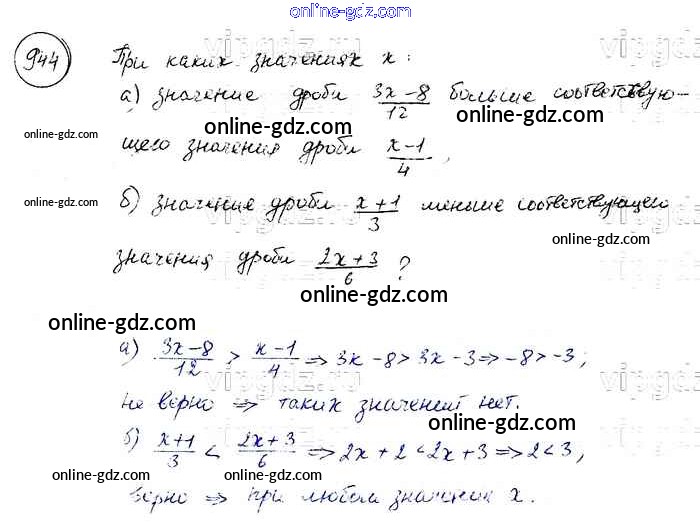 online-gdz.com
944 При каких значениях x:
а) значение дроби (3x-8)/12 больше соответствую-
щего значения дроби (x-1)/4,
б) значение дроби (x+1)/3 меньше соответствующего
значения дроби (2x+3)/6 ?
а) (3x-8)/12 > (x-1)/4 ⇒ 3x-8 > 3x-3 ⇒ -8 > -3;
не верно ⇒ таких значений нет.
б) (x+1)/3 < (2x+3)/6 ⇒ 2x+2 < 2x+3 ⇒ 2 < 3,
верно ⇒ при любом значении x.
vipgdz.ru
online-gdz.com
online-gdz.com
online-gdz.com
online-gdz.com
online-gdz.com
online-gdz.com
online-gdz.com
online-gdz.com
online-gdz.com
online-gdz.com
online-gdz.com